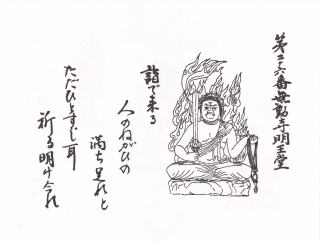 第三六番無動寺明王堂
詣で来る
人のねがひの
満ち足れと
ただひとすじ耳
祈る明け今れ